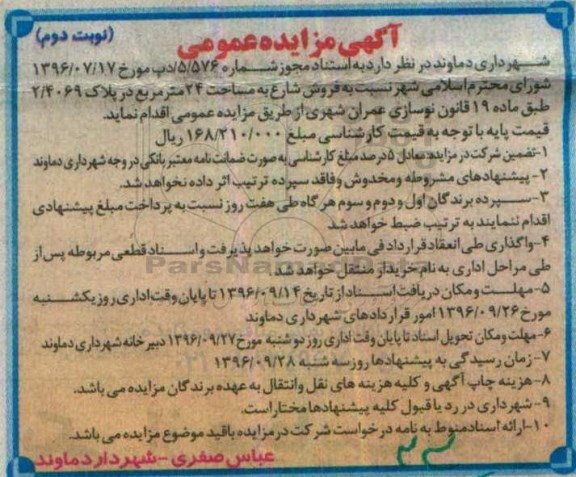 آگهی مزایده عمومی
(نوبت دوم)
شهرداری دماوند در نظر دارد به استناد مجوز شماره ۵/۵۷۶/دب مورخ ۱۳۹۶/۰۷/۱۷
شورای محترم اسلامی شهر نسبت به فروش شارع به مساحت ۲۴ مترمربع در پلاک ۲/۴۰۶۹
طبق ماده ۱۹ قانون نوسازی عمران شهری از طریق مزایده عمومی اقدام نماید.
قیمت پایه با توجه به قیمت کارشناسی مبلغ ۱۶۸/۲۱۰/۰۰۰ ریال
۱-تضمین شرکت در مزایده: معادل ۵ درصد مبلغ کارشناسی به صورت ضمانت نامه معتبر بانکی در وجه شهرداری دماوند
۲- پیشنهادهای مشروطه و مخدوش و فاقد سپرده ترتیب اثر داده نخواهد شد.
۳-سپرده برندگان اول و دوم و سوم هرگاه طی هفت روز نسبت به پرداخت مبلغ پیشنهادی
اقدام ننمایند به ترتیب ضبط خواهد شد
۴-واگذاری طی انعقاد قرارداد فی مابین صورت خواهد پذیرفت و اسناد قطعی مربوطه پس از
طی مراحل اداری به نام خریدار منتقل خواهد شد.
۵-مهلت و مکان دریافت اسناد از تاریخ ۱۳۹۶/۰۹/۱۴ تا پایان وقت اداری روز یکشنبه
مورخ ۱۳۹۶/۰۹/۲۶ امور قراردادهای شهرداری دماوند
۶-مهلت و مکان تحویل اسناد تا پایان وقت اداری روز دو شنبه مورخ ۱۳۹۶/۰۹/۲۷ دبیر خانه شهرداری دماوند
۷- زمان رسیدگی به پیشنهادها روز سه شنبه ۱۳۹۶/۰۹/۲۸
۸-هزینه چاپ آگهی و کلیه هزینه های نقل و انتقال به عهده برندگان مزایده می باشد.
۹-شهرداری در رد یا قبول کلیه پیشنهادها مختار است.
۱۰-ارائه اسناد منوط به نامه درخواست شرکت در مزایده با قید موضوع مزایده می باشد.
عباس صفری -شهردار دماوند